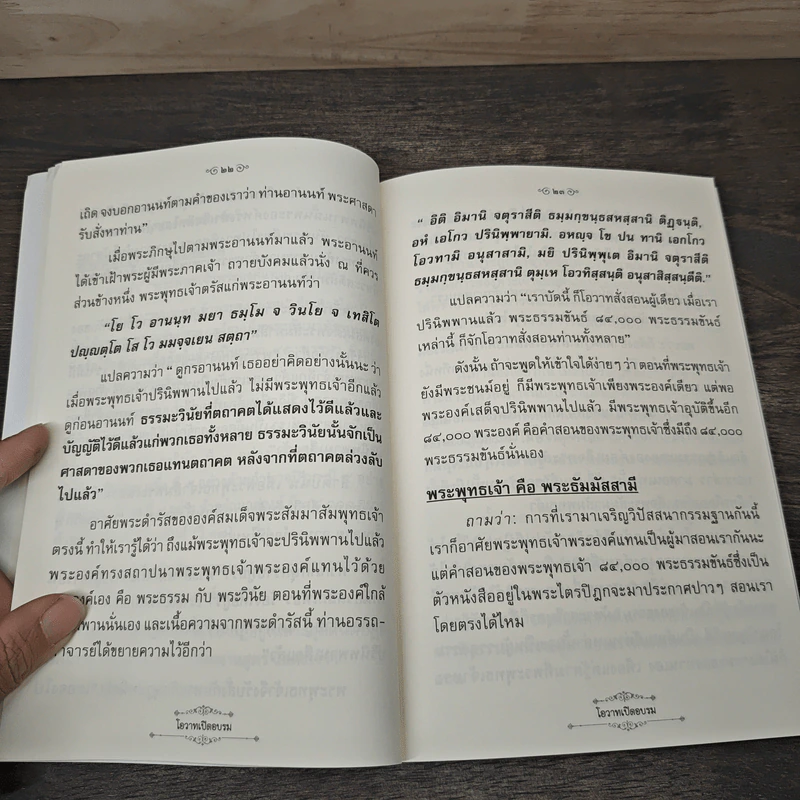 ๒๒
เถิด จงบอกอานนท์ตามคำของเราว่า ท่านอานนท์ พระศาสดา
รับสั่งหาท่าน”
เมื่อพระภิกษุไปตามพระอานนท์มาแล้ว พระอานนท์
ได้เข้าเฝ้าพระผู้มีพระภาคเจ้า ถวายบังคมแล้วนั่ง ณ ที่ควร
ส่วนข้างหนึ่ง พระพุทธเจ้าตรัสแก่พระอานนท์ว่า
“โย โว อานนฺท มยา ธมฺโม จ วินโย จ เทสิโต
ปญฺญตฺโต โส โว มมจฺจเยน สตฺถา”
แปลความว่า “ ดูกรอานนท์ เธออย่าคิดอย่างนั้นนะ ว่า
เมื่อพระพุทธเจ้าปรินิพพานไปแล้ว ไม่มีพระพุทธเจ้าอีกแล้ว
ดูก่อนอานนท์ ธรรมะวินัยที่ตถาคตได้แสดงไว้ดีแล้วและ
บัญญัติไว้ดีแล้วแก่พวกเธอทั้งหลาย ธรรมะวินัยนั้นจักเป็น
ศาสดาของพวกเธอแทนตถาคต หลังจากที่ตถาคตล่วงลับ
ไปแล้ว”
อาศัยพระดำรัสขององค์สมเด็จพระสัมมาสัมพุทธเจ้า
ตรงนี้ ทำให้เรารู้ได้ว่า ถึงแม้พระพุทธเจ้าจะปรินิพพานไปแล้ว
พระองค์ทรงสถาปนาพระพุทธเจ้าพระองค์แทนไว้ด้วย
องค์เอง คือ พระธรรม กับ พระวินัย ตอนที่พระองค์ใกล้
พพานนั่นเอง และเนื้อความจากพระดำรัสนี้ ท่านอรรถ-
าจารย์ได้ขยายความไว้อีกว่า
โอวาทเปิดอบรม
๒๓
“ อิติ อิมานิ จตุราสีติ ธมฺมกฺขนฺธสหสฺสานิ ติฏฺฐนฺติ,
อหํ เอโกว ปรินิพฺพายามิ. อหญฺจ โข ปน ทานิ เอกโกว
โอวทามิ อนุสาสามิ, มยิ ปรินิพฺพุเต อิมานิ จตุราสีติ
ธมฺมกฺขนฺธสหสฺสานิ ตุมฺเห โอวทิสฺสนฺติ อนุสาสิสฺสนฺตีติ.”
แปลความว่า “เราบัดนี้ ก็โอวาทสั่งสอนผู้เดียว เมื่อเรา
ปรินิพพานแล้ว พระธรรมขันธ์ ๘๔,๐๐๐ พระธรรมขันธ์
เหล่านี้ ก็จักโอวาทสั่งสอนท่านทั้งหลาย”
ดังนั้น ถ้าจะพูดให้เข้าใจได้ง่ายๆ ว่า ตอนที่พระพุทธเจ้า
ยังมีพระชนม์อยู่ ก็มีพระพุทธเจ้าเพียงพระองค์เดียว แต่พอ
พระองค์เสด็จปรินิพพานไปแล้ว มีพระพุทธเจ้าอุบัติขึ้นอีก
๘๔,๐๐๐ พระองค์ คือคำสอนของพระพุทธเจ้าซึ่งมีถึง ๘๔,๐๐๐
พระธรรมขันธ์นั่นเอง
พระพุทธเจ้า คือ พระธัมมัสสามี
ถามว่า: การที่เรามาเจริญวิปัสสนากรรมฐานกันนี้
เราก็อาศัยพระพุทธเจ้าพระองค์แทนเป็นผู้มาสอนเรากันนะ
แต่คำสอนของพระพุทธเจ้า ๘๔,๐๐๐ พระธรรมขันธ์ซึ่งเป็น
ตัวหนังสืออยู่ในพระไตรปิฎกจะมาประกาศปาวๆ สอนเรา
โดยตรงได้ไหม
โอวาทเปิดอบรม